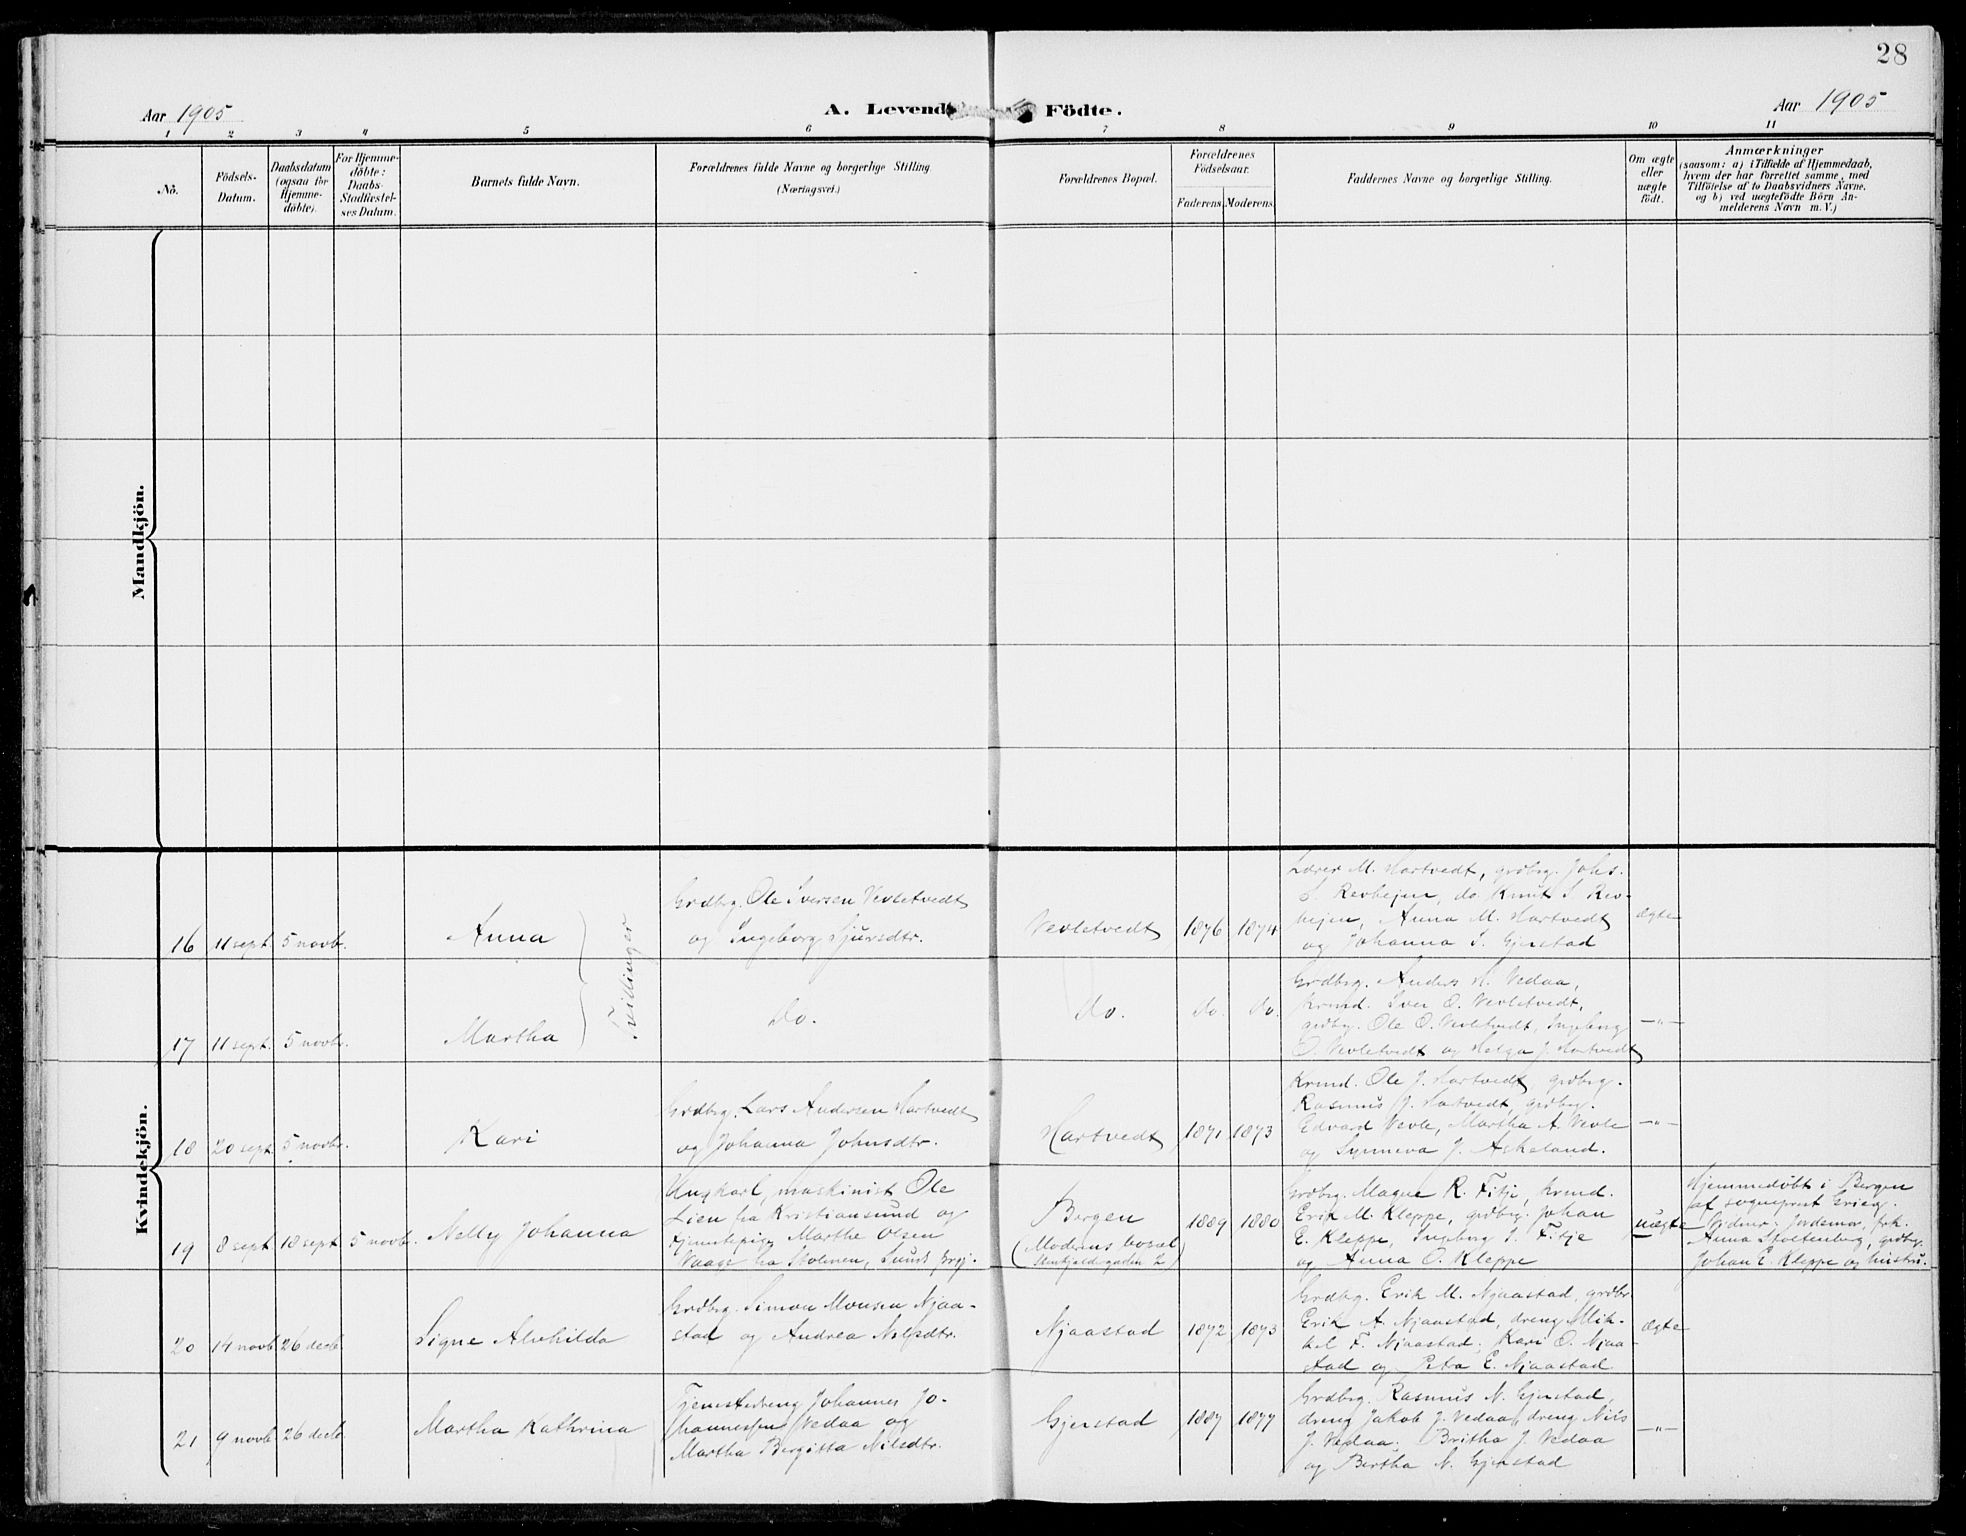 28
Aar 1905
A. Levende Födte.
Aar 1905
1 2 3 4 5 6 7 8 9 10 11
No.
Födsels-
Datum.
Daabsdatum
(ogsaa för
Hjemme-
döbte).
For Hjemme-
döbte:
Daabs-
Stadfæstel-
ses Datum.
Barnets fulde Navn.
Forældrenes fulde Navne og borgerlige Stilling
(Næringsvei.)
Forældrenes Bopæl.
Forældrenes
Födselsaar.
Faderens. Moderens.
Faddernes Navne og borgerlige Stilling.
Om ægte
eller
uægte
födt.
Anmærkninger
(saasom: a) i Tilfælde af Hjemmedaab,
hvem der har forrettet samme, med
Tilföielse af to Daabsvidners Navne.
og b) ved uægtefödte Börn An-
melderens Navn m. V.)
Mandkjön.
Kvindekjön.
16 11 sept. 5 novb.
Anna
Tvillinger
Grdbrg. Ole Iversen Vevletvedt
og Ingeborg Sjursdtr.
Vevletvedt
1876 1874
Lærer M. Hartvedt, grdbrg. Johs.
S. Revhejen, do. Knut S. Rev-
hejen, Anna M. Hartvedt
og Johanna S. Gjerstad
ægte
17 11 sept. 5 novb.
Martha
Do.
Do.
do. do.
Grdbrg. Anders H. Vedaa,
krmd. Iver O. Vevletvedt,
grdbrg. Ole O. Vevletvedt, Ingeborg
O. Vevletvedt og Helga J. Hartvedt
—"—
18 20 sept. 5 novb.
Kari
Grdbrg. Lars Andersen Hartvedt
og Johanna Johnsdtr.
Hartvedt
1871 1873
Krmd. Ole J. Hartvedt, grdbrg.
Rasmus J. Hartvedt, grdbrg.
Edvard Vevle, Martha A. Vevle
og Synneva J. Askeland.
—"—
19 8 sept. 18 sept. 5 novb.
Nelly Johanna
Ungkarl, maskinist Ole
Lien fra Kristiansund og
tjenestepige Marthe Olsen
Vaage fra Stolmen, Sunds prgj.
Bergen
(Moderens bopæl
1889 1880
Grdbrg. Magne R. Fitje, krmd.
Erik M. Kleppe, grdbrg. Johan
E. Kleppe, Ingeborg S. Fitje
og Anna O. Kleppe
uægte
Hjemmedøbt i Bergen
af sogneprest Grieg.
Vidner: Jordemor, frk.
Anna Stoltenberg, grdbrg.
Johan E. Kleppe og hustru.
20 14 novb. 26 decb.
Signe Alvhilda
Grdbrg. Simon Monsen Njaa-
stad og Andrea Nilsdtr.
Njaastad
1872 1873
Grdbrg. Erik M. Njaastad, grdbr.
Erik A. Njaastad, dreng Mik-
kel F. Njaastad, Kari O. Njaa-
stad og Petra E. Njaastad
ægte
21 9 novb. 26 decb.
Martha Kathrina
Tjenestedreng Johannes Jo-
hannessen Vedaa og
Martha Bergitta Nilsdtr.
Gjerstad
1887 1877
Grdbrg. Rasmus N. Gjerstad,
dreng Jakob J. Vedaa, dreng Nils
J. Vedaa. Britha J. Vedaa
og Bertha N. Gjerstad
—"—